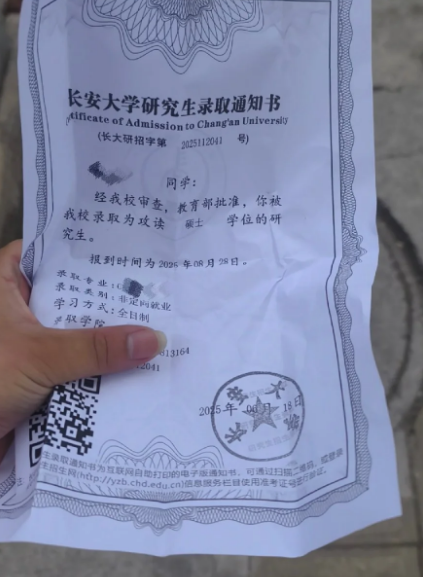 长安大学研究生录取通知书
tificate of Admission to Chang'an University
(长大研招字第 2025112041 号)
同学:
经我校审查,教育部批准,你被
我校录取为攻读 硕士 学位的研
究生。
报到时间为2025年08月28日。
录取专业:
录取类别:非定向就业
学习方式:全日制
取学院
813164
12041
2025年06月18日
生录取通知书为互联网自助打印的电子版通知书,可通过扫描二维码,或登录
生招生网(http://yzb.chd.edu.cn)信息服务栏目使用准考证号进行验证。